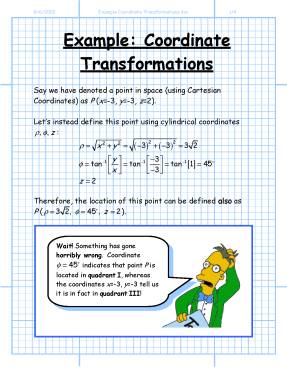 Example Coordinate Transformations.doc
1/4
Example: Coordinate
Transformations
Say we have denoted a point in space (using Cartesian
Coordinates) as P(x=-3, y=-3, z=2).
Let's instead define this point using cylindrical coordinates
ρ, φ, z:
ρ = √x² + y² = √(-3)² + (-3)² = 3√2
φ = tan⁻¹[y/x] = tan⁻¹[-3/-3] = tan⁻¹[1] = 45°
z = 2
Therefore, the location of this point can be defined also as
P(ρ = 3√2, φ = 45°, z = 2).
Wait! Something has gone
horribly wrong. Coordinate
φ = 45° indicates that point P is
located in quadrant I, whereas
the coordinates x=-3, y=-3 tell us
it is in fact in quadrant III!